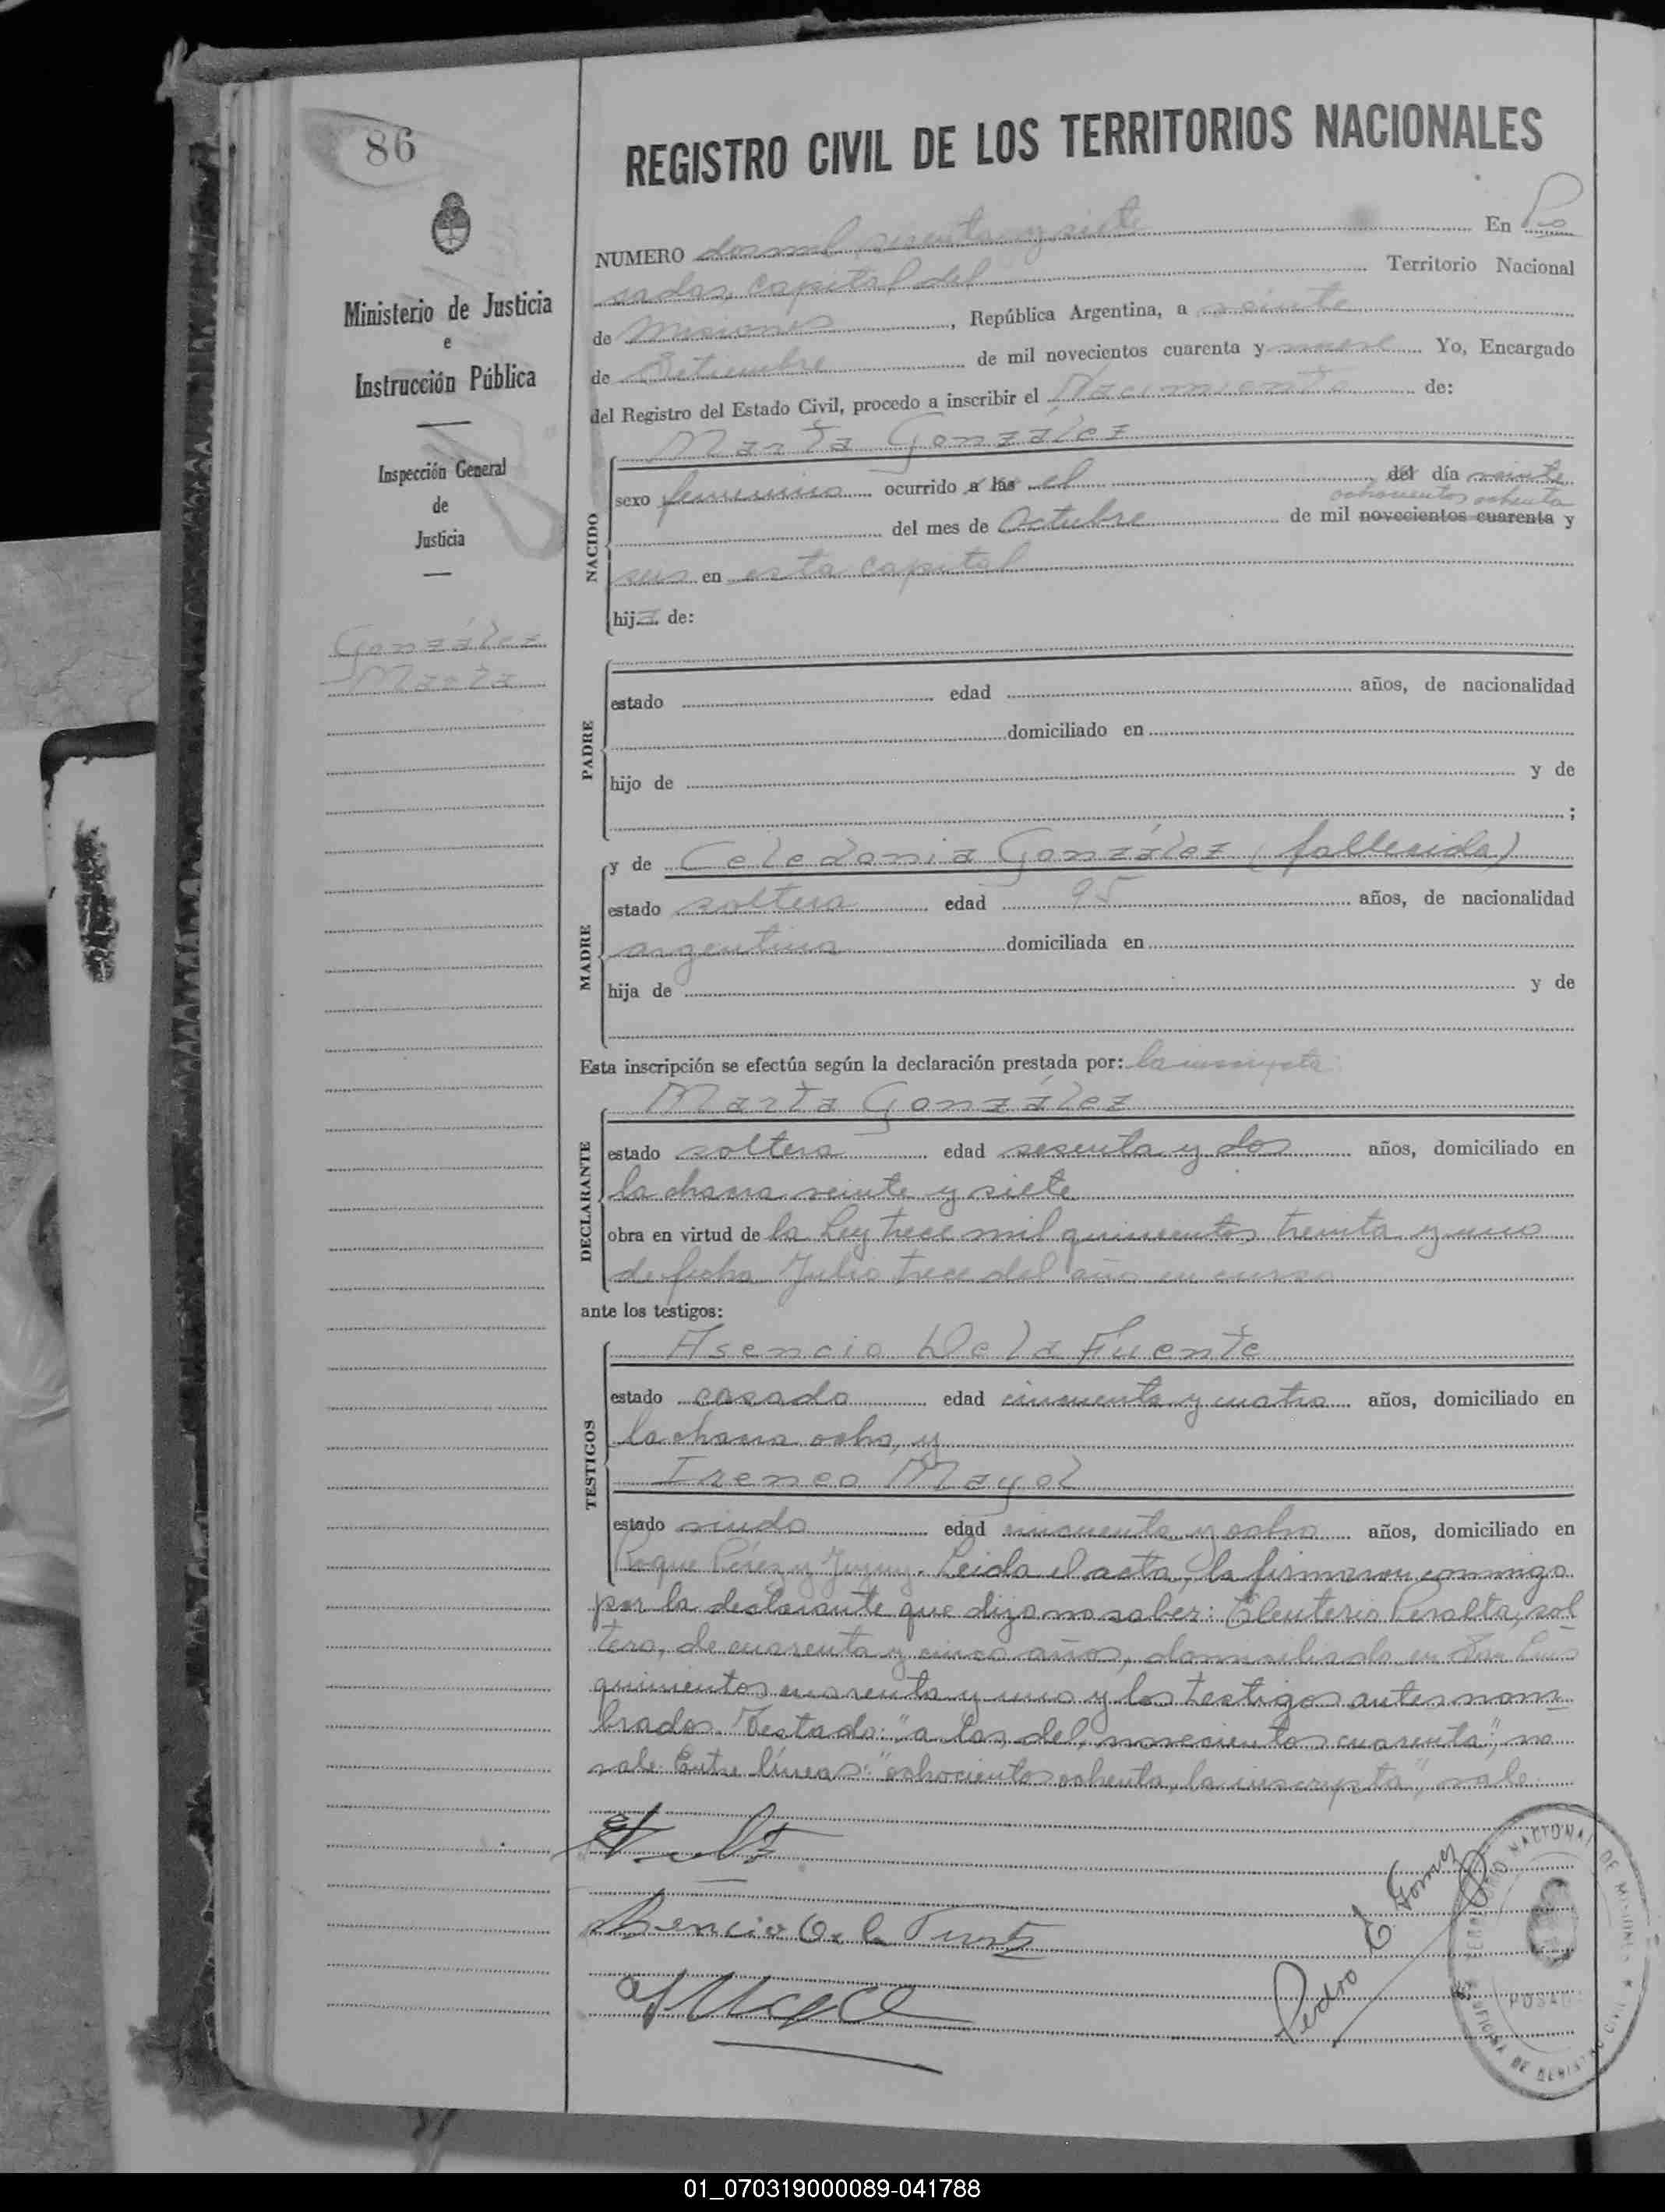 86
REGISTRO CIVIL DE LOS TERRITORIOS NACIONALES
Ministerio de Justicia
e
Instrucción Pública
Inspección General
de
Justicia
González
Marta
NUMERO dos mil sesenta y siete En Po
sadas, capital del Territorio Nacional
de Misiones, República Argentina, a veinte
de Setiembre de mil novecientos cuarenta y nueve Yo, Encargado
del Registro del Estado Civil, procedo a inscribir el Nacimiento de:
Marta González
NACIDO
sexo femenino ocurrido a las el del día veinte
ochocientos ochenta
del mes de Octubre de mil novecientos cuarenta y
seis en esta capital
hija de:
PADRE
estado edad años, de nacionalidad
domiciliado en
hijo de y de
;
MADRE
y de Celedonia González (fallecida)
estado soltera edad 95 años, de nacionalidad
argentina domiciliada en
hija de y de
Esta inscripción se efectúa según la declaración prestada por: la inscripta
DECLARANTE
Marta González
estado soltera edad sesenta y dos años, domiciliado en
la chacra veinte y siete
obra en virtud de la Ley trece mil quinientos treinta y uno
de fecha Julio trece del año en curso
ante los testigos:
TESTIGOS
Asencio De la Fuente
estado casado edad cincuenta y cuatro años, domiciliado en
la chacra ocho, y
Ireneo Mayol
estado viudo edad cincuenta y ocho años, domiciliado en
Roque Pérez y Jujuy. Leida el acta, la firmaron conmigo
por la declarante que dijo no saber: Eleuterio Peralta, sol
tero, de cuarenta y cinco años, domiciliado en San Luis
quinientos cuarenta y uno y los testigos antes nom
brados. Testado: "a las, del, novecientos cuarenta", no
vale. Entre líneas: "ochocientos ochenta, la inscripta", vale.
Asencio De la Fuente
Pedro E. Gomez
TERRITORIO NACIONAL DE MISIONES
POSADAS
OFICINA DE REGISTRO CIVIL
01_070319000089-041788